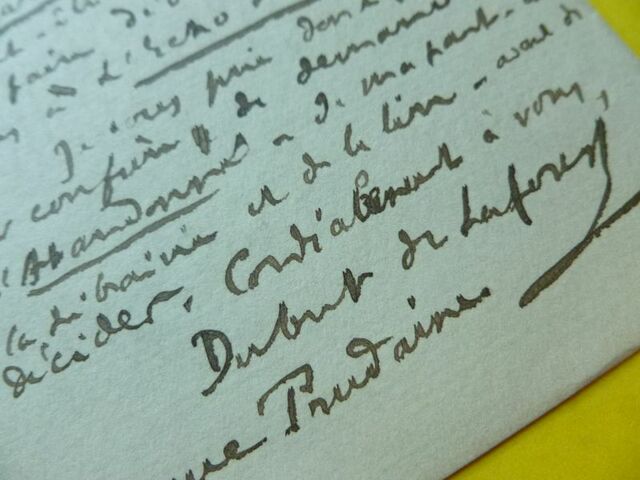 faire d
à L'Echo
Je vous prie donc
confrère de demande
Abandonné à Je ma part
la librairie et de le lire - avant de
décider. Cordialement à vous,
Dubut de Laforest
rue Trudaine